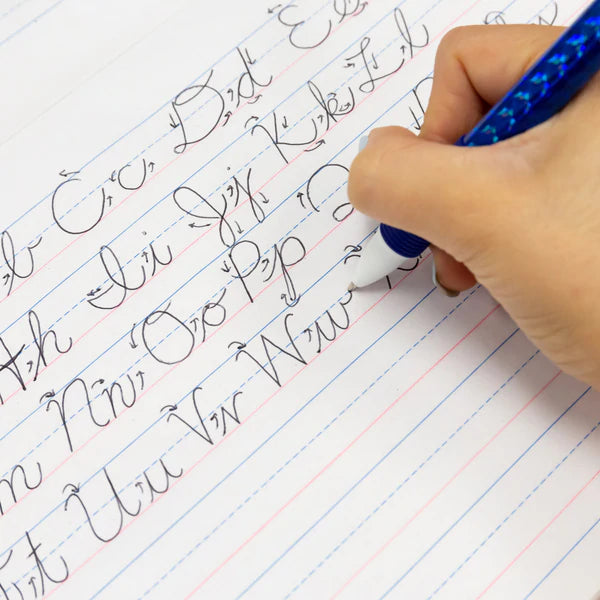 b Cc Dd Ee
Hh Ii Jj Kk Ll
m Nn Oo Pp Q
t Uu Vv Ww